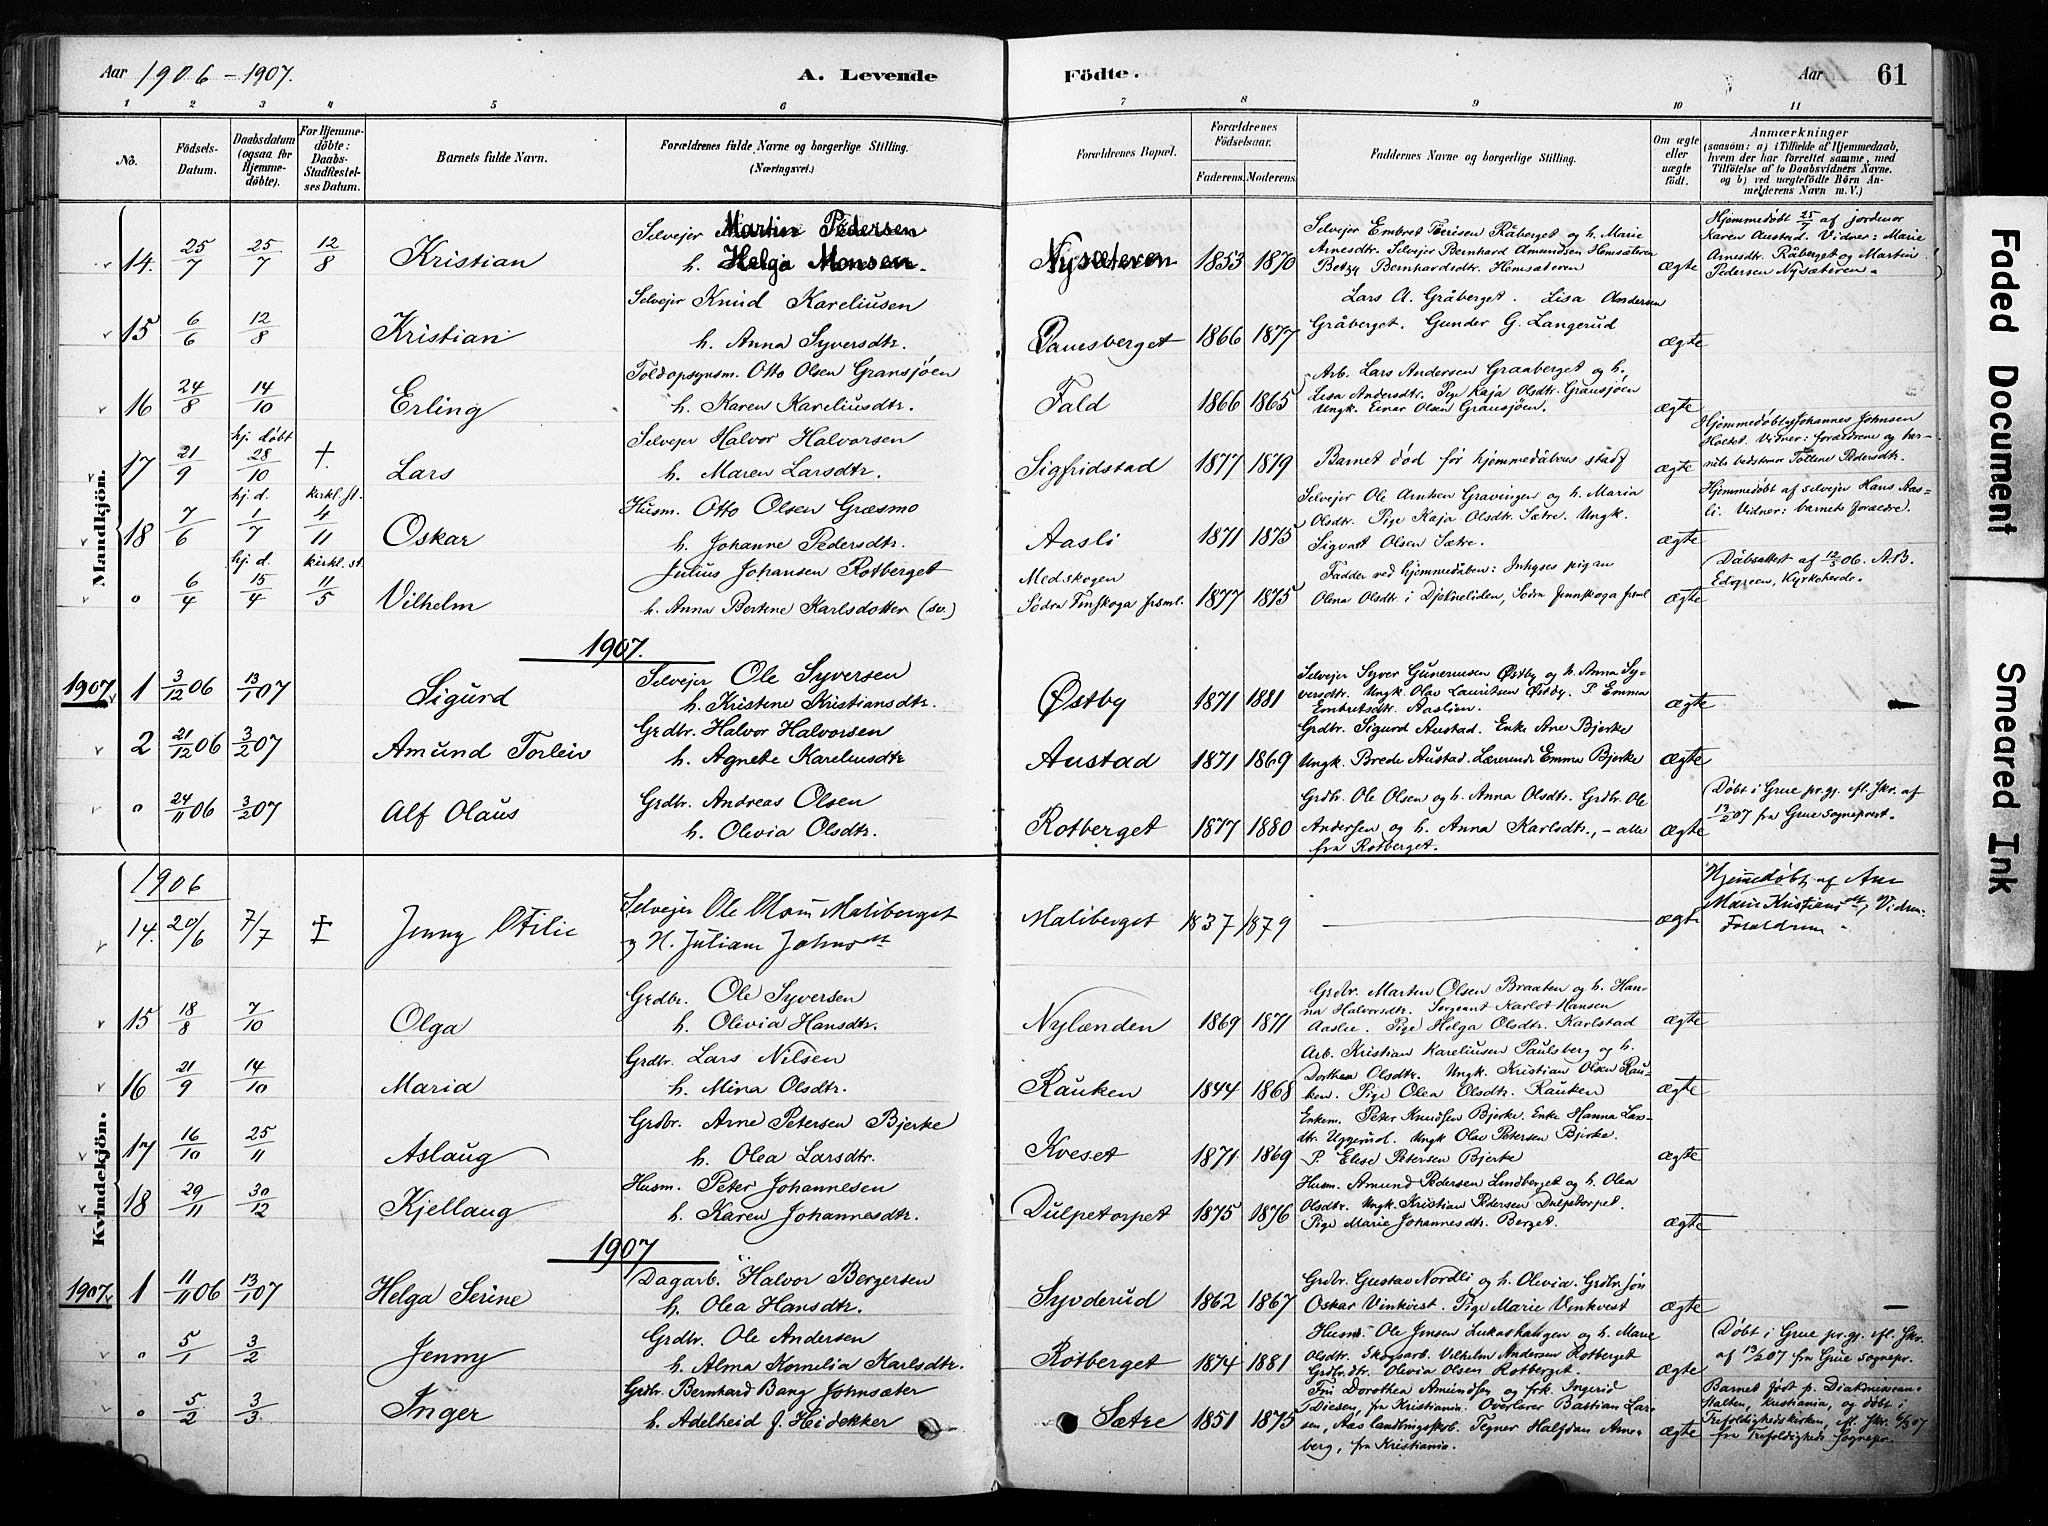 Aar 1906 - 1907.
A. Levende
Födte.
Aar
61
1 2 3 4 5 6 7 8 9 10 11
No.
Födsels-Datum.
Daabsdatum (ogsaa for Hjemme-döbte).
For Hjemme-döbte: Daabs-Stadfæstel-ses Datum.
Barnets fulde Navn.
Forældrenes fulde Navne og borgerlige Stilling. (Næringsvei.)
Forældrenes Bopæl.
Forældrenes Födselsaar.
Faderens. Moderens.
Faddernes Navne og borgerlige Stilling.
Om ægte eller uægte födt.
Anmærkninger (saasom: a) i Tilfælde af Hjemmedaab, hvem der har forrettet samme, med Tilföielse af to Daabsvidners Navne, og b) ved uægtefödte Börn An-melderens Navn m. V.)
Mandkjön.
14. 25/7 25/7 12/8 Kristian
Selvejer Martin Pedersen
h. Helga Monsen.
Nysæteren 1853 1870
Selvejer Embret Tverisen Råberget og h. Marie
Arnesdtr. Selvejer Bernhard Amundsen Hemsæteren
Betzy Bernhardsdtr. Hemsæteren
ægte
Hjemmedøbt 25/7 af jordmor
Karen Austad. Vidner: Marie
Arnesdtr. Råberget og Martin
Pedersen Nysæteren.
15 6/6 12/8 Kristian
Selvejer Knud Kareliusen
h. Anna Syversdtr.
Paulsberget 1866 1877
Lars A. Gråberget. Lisa Andersen
Gråberget. Gunder G. Langerud
ægte
16 24/8 14/10 Erling
Toldopsynsm. Otto Olsen Gransjøen
h. Karen Kareliusdtr.
Fald 1866 1865
Arb. Lars Andersen Graaberget og h.
Lisa Andersdtr. Pige Kaja Olsdtr. Gransjøen
Ungk. Einar Olsen Gransjøen.
ægte
17 21/9 hj. døbt 28/10 †. Lars
Selvejer Halvor Halvorsen
h. Maren Larsdtr.
Sigfridstad 1877 1879
Barnet død før hjemmedåbens stadf
ægte
Hjemmedøbt af Johannes Johnsen
Kveset. Vidner: forældrene og bar-
nets bedstemor Tollene Pedersdtr.
18 7/6 hj. d. 1/7 kirkl. st. 4/11 Oskar
Husm. Otto Olsen Græsmo
h. Johanne Pedersdtr.
Aasli 1871 1875
Selvejer Ole Arntsen Gravingen og h. Maria
Olsdtr. Pige Kaja Olsdtr. Sætre. Ungk.
Sigvart Olsen Sætre.
ægte
Hjemmedøbt af selvejer Hans Aas-
li. Vidner: barnets forældre.
o 6/4 hj. d. 15/4 kirkl. st. 11/5 Vilhelm
Julius Johansen Rotberget
h. Anna Bertene Karlsdotter (sv.)
Medskogen
Södra Finskoga frsml. 1877 1875
Fadder ved hjemmedåben: Inhyses pigan
Olena Olsdtr. i Djekneliden, Södra Finnskoga frsml
ægte
Dåbsattest af 12/5 06. A.B.
Edgreen, Kyrkoherde.
1907.
1907 1 3/12 06 13/1 07 Sigurd
Selvejer Ole Syversen
h. Kristene Kristiansdtr.
Østby 1871 1881
Selvejer Syver Gunerusen Østby og h. Anna Sy-
versdtr. Ungk. Olav Lauritsen Østby. P. Emma
Embretsdtr. Aaslien.
ægte
2 21/12 06 3/2 07 Amund Torleiv
Grdbr. Halvor Halvorsen
h. Agnete Kareliusdtr
Austad 1871 1869
Grdbr. Sigurd Austad. Enke Ane Bjerke
Ungk. Brede Austad. Lærerinde Emma Bjerke
ægte
o 24/11 06 3/2 07 Alf Olaus
Grdbr. Andreas Olsen
h. Olivia Olsdtr.
Rotberget 1877 1880
Grdbr. Ole Olsen og h. Anna Olsdtr. Grdbr. Ole
Andersen og h. Anna Karlsdtr., - alle
fra Rotberget.
ægte
Døbt i Grue pr.gj. efl. skr. af
13/2 07 fra Grue sogneprest.
Kvindekjön.
1906
14. 20/6 7/7 † Jenny Otilie
Selvejer Ole Olsen Maliberget
og H. Juliane Johnsdtr
Maliberget 1837 1879
ægte
Hjemmedøbt af Ane
Marie Kristiansdtr, Vidner:
Forældrene
15 18/8 7/10 Olga
Grdbr. Ole Syversen
h. Olivia Hansdtr.
Nylænden 1869 1871
Grdbr. Marten Olsen Braaten og h. Han-
na Halvorsdtr. Sergeant Karlot Hansen
Aaslie. Pige Helga Olsdtr. Karlstad
ægte
16 21/9 14/10 Maria
Grdbr. Lars Nilsen
h. Mina Olsdtr.
Rauken 1844 1868
Arb. Kristian Kareliusen Paulsberg og h.
Dorthea Olsdtr. Ungk. Kristian Olsen Rau-
ken. Pige Olea Olsdtr. Rauken
ægte
17 16/10 25/11 Aslaug
Grdbr. Arne Petersen Bjerke
h. Olea Larsdtr.
Kveset 1871 1869
Enkem. Peter Knudsen Bjerke. Enke Hanna Lars-
dtr. Uggerud. Ungk Olav Petersen Bjerke.
P. Elise Petersen Bjerke
ægte
18 29/11 30/12 Kjellaug
Husm. Peter Johannesen
h. Karen Johannesdtr.
Dulpetorpet 1875 1876
Husm. Amund Pedersen Lindberget og h. Olea
Olsdtr. Ungk. Kristian Pedersen Dulpetorpet.
Pige Marie Johannesdtr. Berget.
ægte
1907
1907 1 11/11 06 13/1 07 Helga Serine
Dagarb. Halvor Bergersen
h. Olea Hansdtr.
Syvderud 1862 1867
Grdbr. Gustav Nordli og h. Olivia. Grdbr.søn
Oskar Vinkvest. Pige Marie Vinkvest
ægte
o 5/1 3/2 Jenny
Grdbr. Ole Andersen
h. Alma Kornelia Karlsdtr.
Rotberget 1874 1881
Husm. Ole Jensen Lukashaugen og h. Marie
Olsdtr. Skogsarb. Vilhelm Andersen Rotberget
Grdbrdtr. Olivia Olsen Rotberget.
ægte
Døbt i Grue pr.gj. efl. skr.
af 13/2 07 fra Grue sognepr.
o 5/2 3/3 Inger
Grdbr. Bernhard Bang Johnsæter
h. Adelheid f. Heidekker
Sætre 1851 1875
Fru Dorothea Amundsen og frk. Ingerid
Diesen, fra Kristiania. Overlærer Bastian Lar-
sen, Aas landbrugsskob. Tegner Halfdan Arne-
berg, fra Kristiania.
ægte
Barnet født p. Diakonissean-
stalten, Kristiania, og døbt i
Trefoldighedskirken, efl. skr. 6/3 07
fra Trefoldigheds sognepr.
Faded Document
Smeared Ink